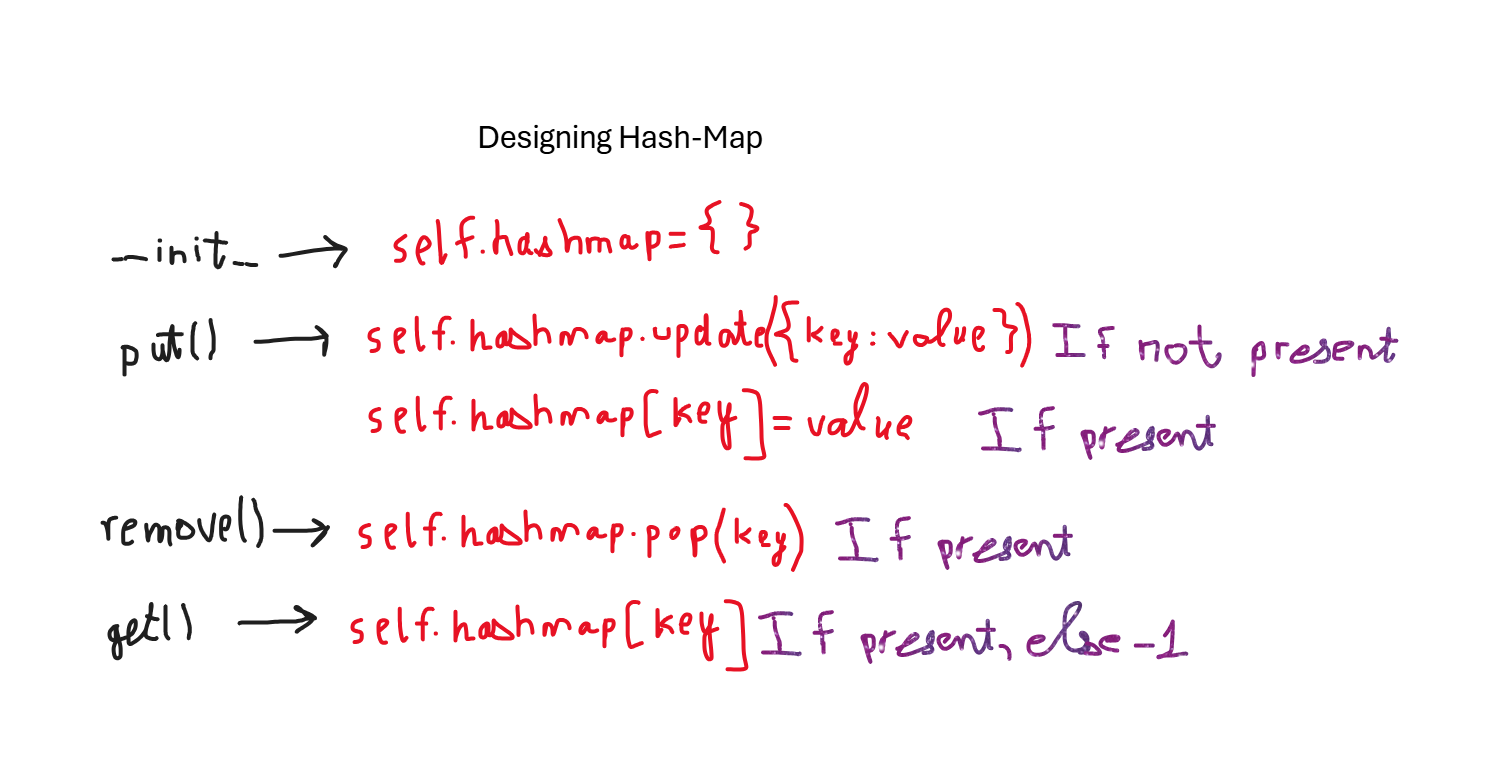 Designing Hash-Map
__init__ → self.hashmap={ }
put() → self.hashmap.update({key:value}) If not present
self.hashmap[key]=value If present
remove() → self.hashmap.pop(key) If present
get() → self.hashmap[key] If present, else -1